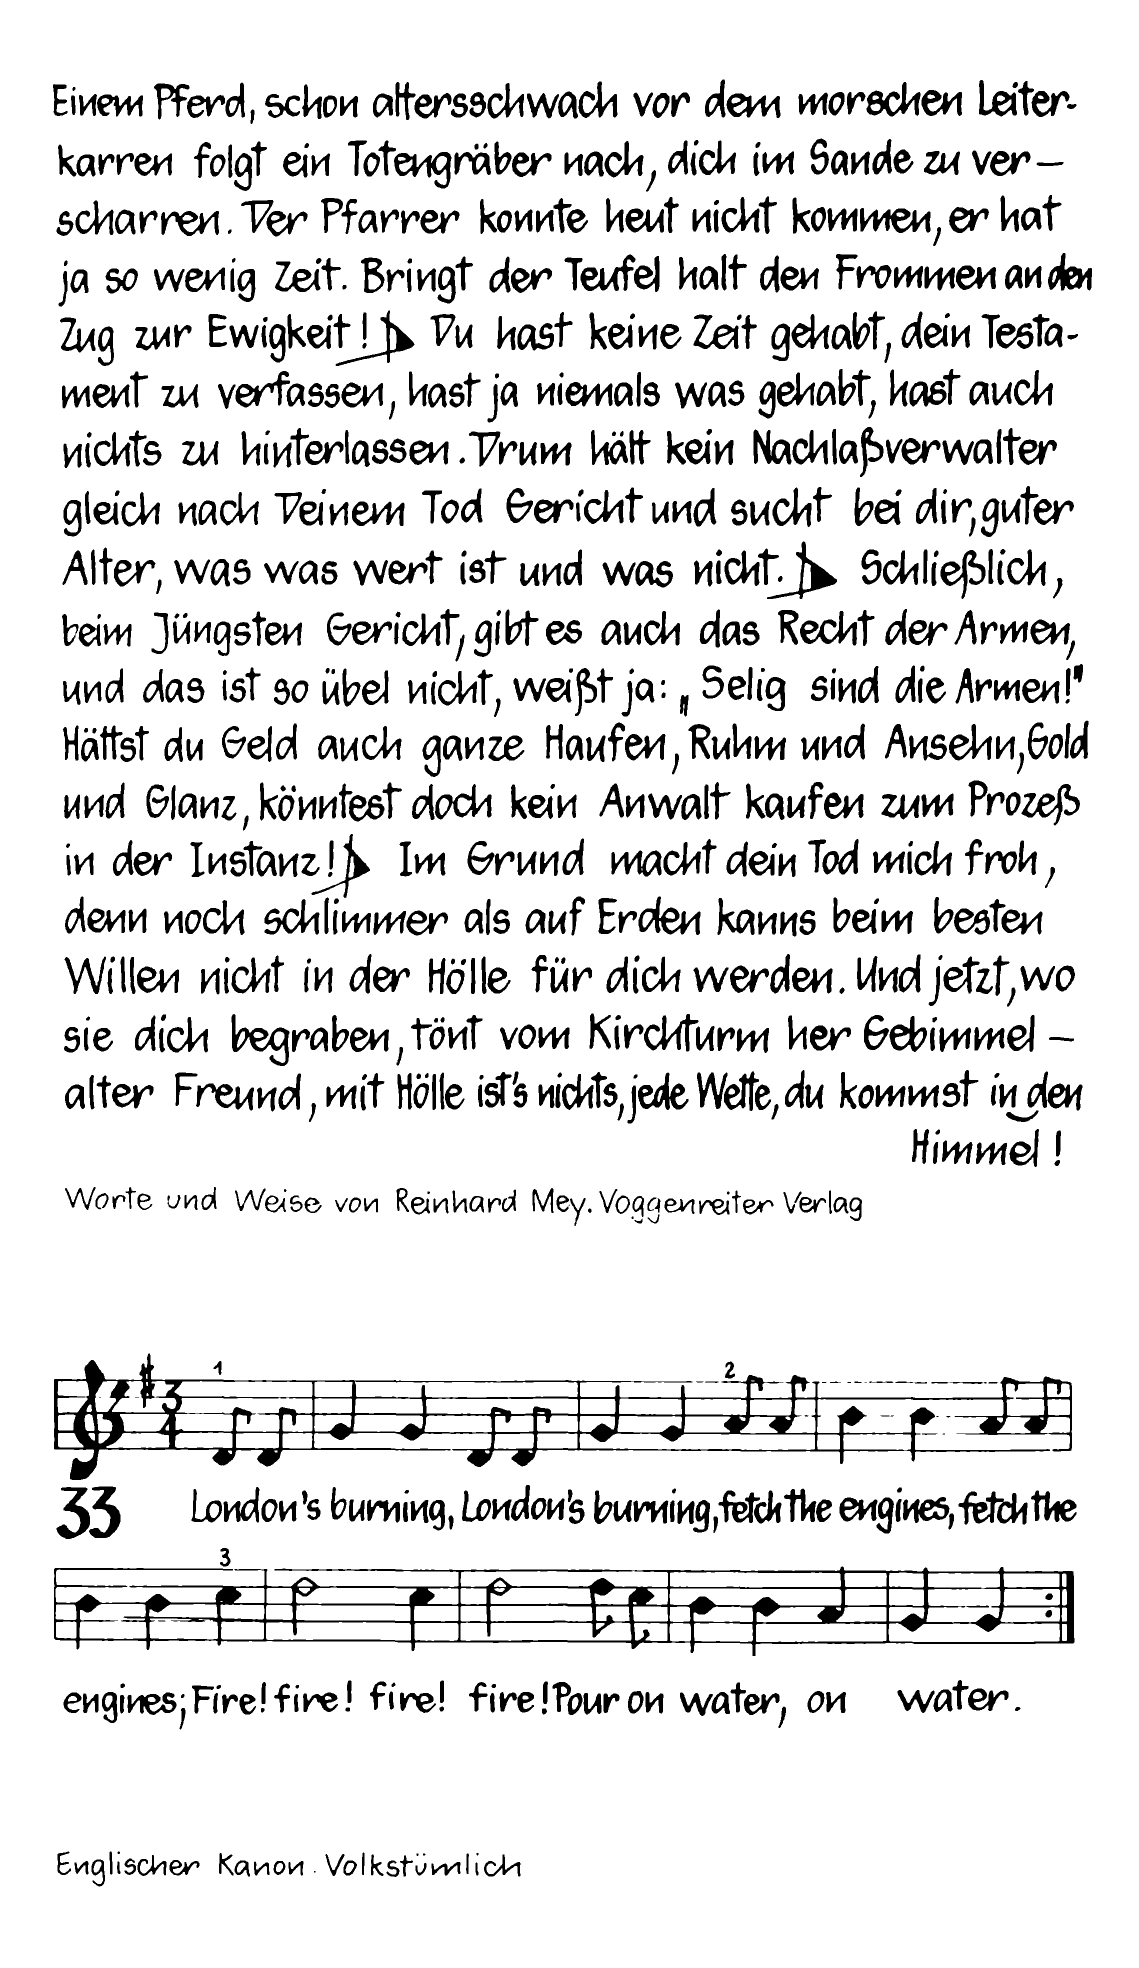 Einem Pferd, schon altersschwach vor dem morschen Leiter-
karren folgt ein Totengräber nach, dich im Sande zu ver–
scharren. Der Pfarrer konnte heut nicht kommen, er hat
ja so wenig Zeit. Bringt der Teufel halt den Frommen an den
Zug zur Ewigkeit! Du hast keine Zeit gehabt, dein Testa-
ment zu verfassen, hast ja niemals was gehabt, hast auch
nichts zu hinterlassen. Drum hält kein Nachlaßverwalter
gleich nach Deinem Tod Gericht und sucht bei dir, guter
Alter, was was wert ist und was nicht. Schließlich,
beim Jüngsten Gericht, gibt es auch das Recht der Armen,
und das ist so übel nicht, weißt ja: „Selig sind die Armen!"
Hättst du Geld auch ganze Haufen, Ruhm und Ansehn, Gold
und Glanz, könntest doch kein Anwalt kaufen zum Prozeß
in der Instanz! Im Grund macht dein Tod mich froh,
denn noch schlimmer als auf Erden kanns beim besten
Willen nicht in der Hölle für dich werden. Und jetzt, wo
sie dich begraben, tönt vom Kirchturm her Gebimmel –
alter Freund, mit Hölle ist's nichts, jede Wette, du kommst in den
Himmel!
Worte und Weise von Reinhard Mey. Voggenreiter Verlag
1 2
3
4
33 London's burning, London's burning, fetch the engines, fetch the
3
engines; Fire! fire! fire! fire! Pour on water, on water.
Englischer Kanon. Volkstümlich